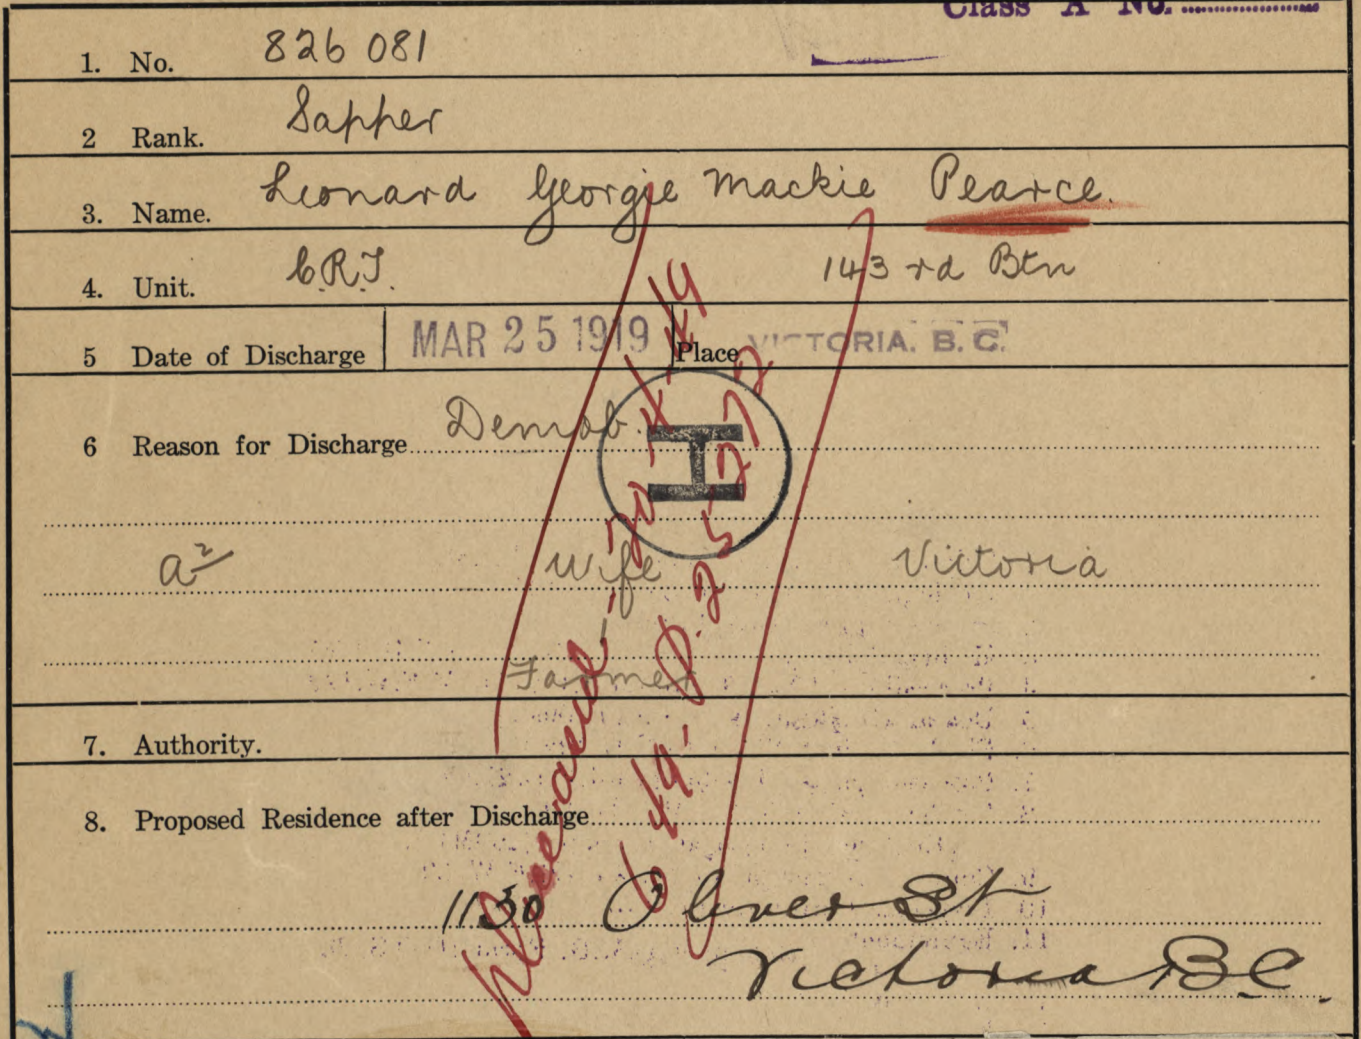 Class A No.
1. No. 826 081
2 Rank. Sapper
3. Name. Leonard Georgie Mackie Pearce.
4. Unit. C.R.T. 143 rd Btn
5 Date of Discharge MAR 25 1919 Place VICTORIA. B. C.
6 Reason for Discharge Demob.
H
a2 Wife Victoria
Farmer
7. Authority.
8. Proposed Residence after Discharge
1130 Oliver St
Victoria B.C.
Deceased - 20-4-49
649-P-25272